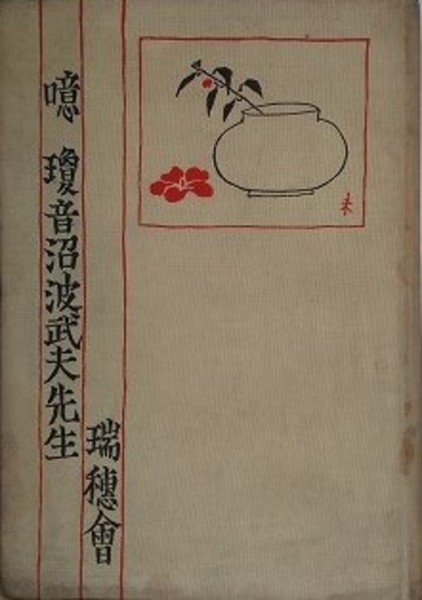 噫 瓊音沼波武夫先生
瑞穗會